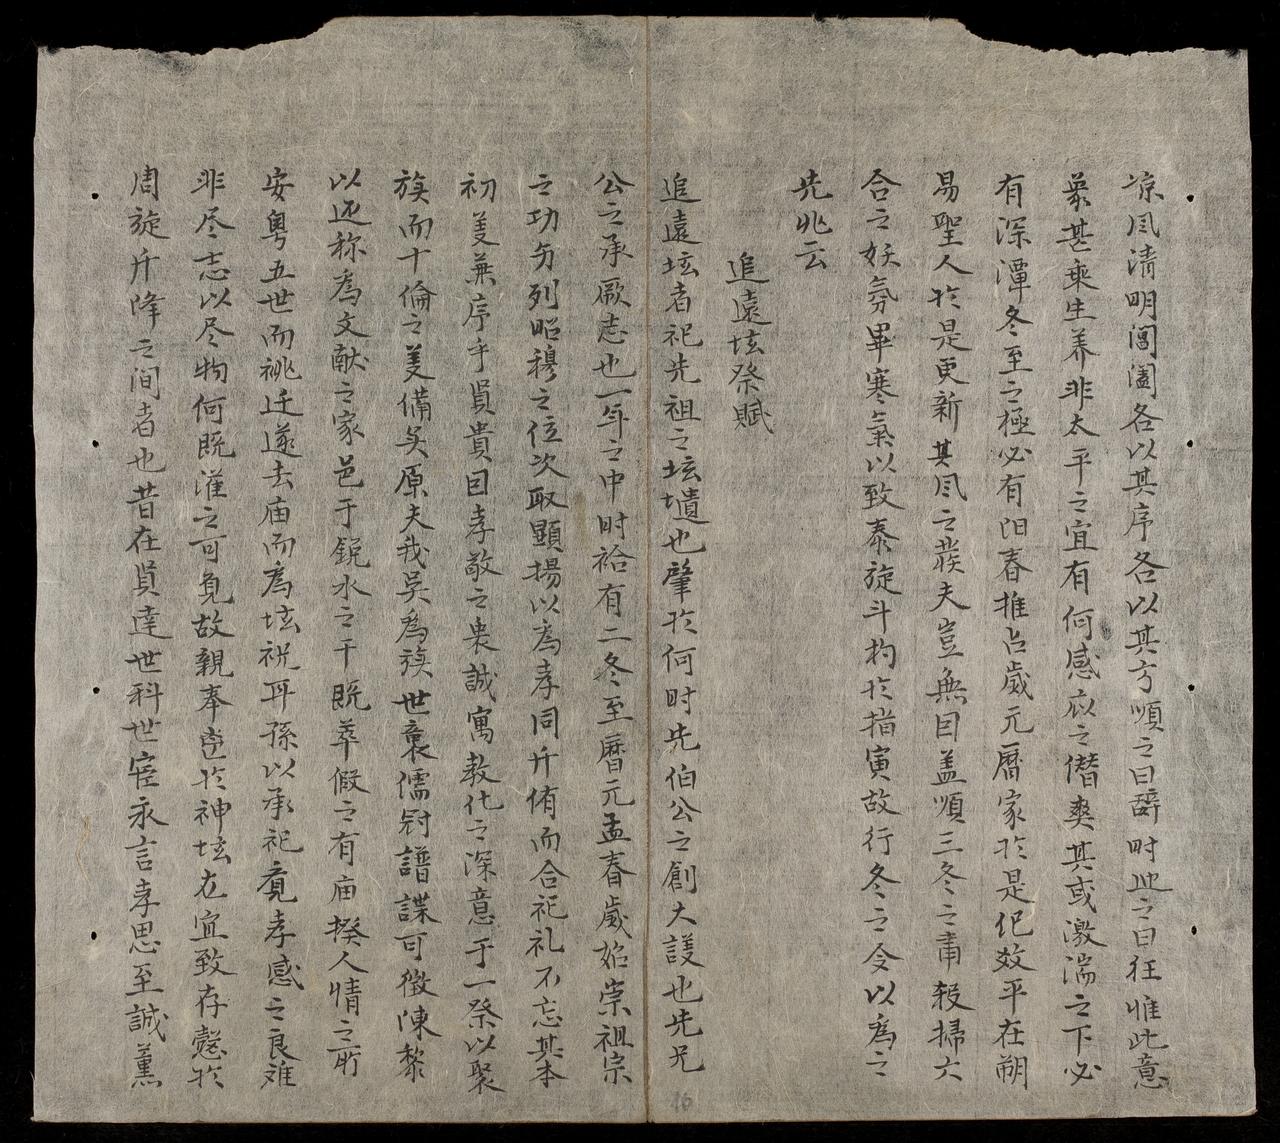 凉风清明閶阖各以其序各以其方順之曰辟时逆之曰狂惟此意
象甚乘生养非太平之宜有何感应之僭爽其或激湍之下必
有深潭冬至之極必有阳春推占歲元曆家於是纪效平在朔
易聖人於是更新其风之蔟夫豈無曰盖順三冬之肅殺掃六
合之妖氛畢寒氣以致泰旋斗杓於指寅故行冬之令以為之
先兆云
追遠坛祭賦
追遠坛者祀先祖之坛墠也肇於何时先伯公之創大護也先兄
公之承厥志也一年之中时祫有二冬至曆元孟春歲始崇祖宗
之功另列昭穆之位次取顯揚以為孝同斤侑而合祀礼不忘其本
初美兼序乎賢貴曰孝敬之衷誠寓教化之深意于一祭以聚
族而十倫之美備矣原夫我吴為族世襲儒冠譜諜可徵陳黎
以还称為文献之家邑于銳水之干既萃假之有庙揆人情之所
安粤五世而祧迁遂去庙而為坛祝耳孫以承祀覔孝感之良难
非尽志以尽物何既滙之可覓故親奉迎於神坛尤宜致存慤於
周旋斤降之间者也昔在貟達世科世宦永言孝思至誠薰
16